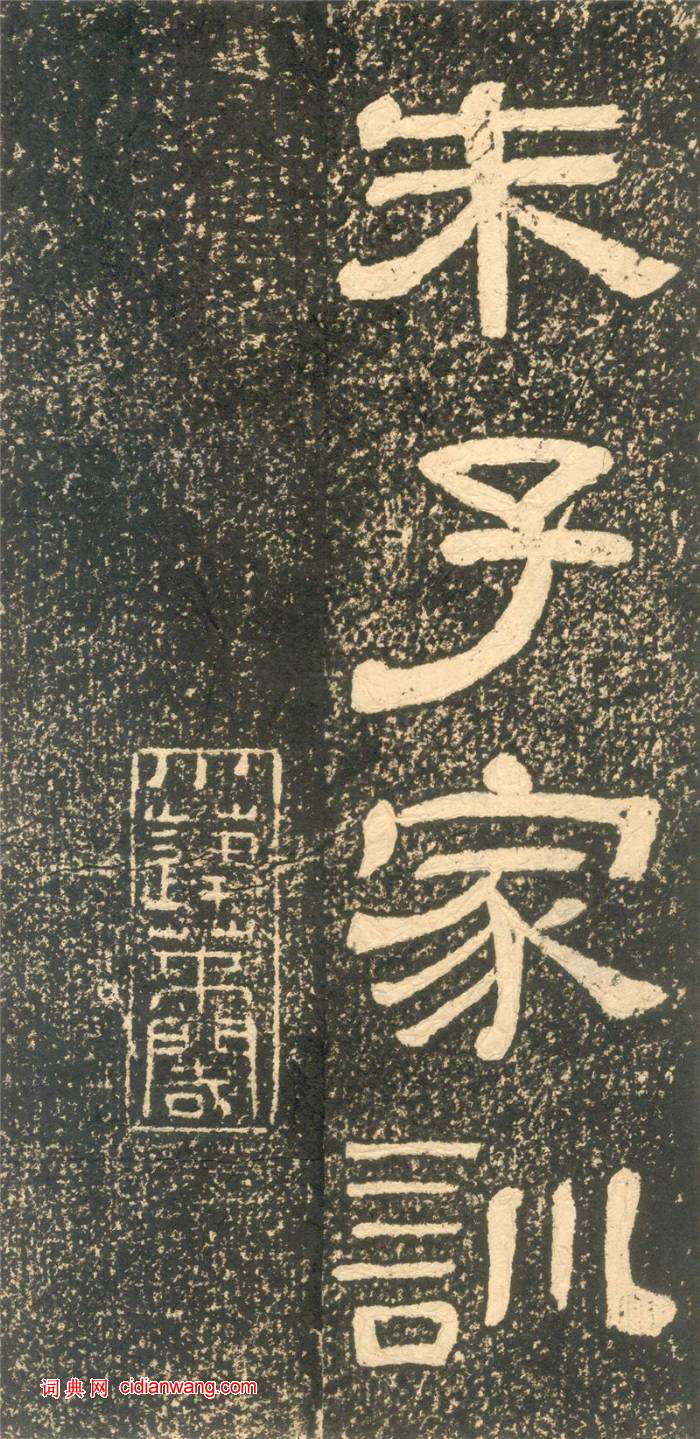 朱子家訓
词典网 cidianwang.com